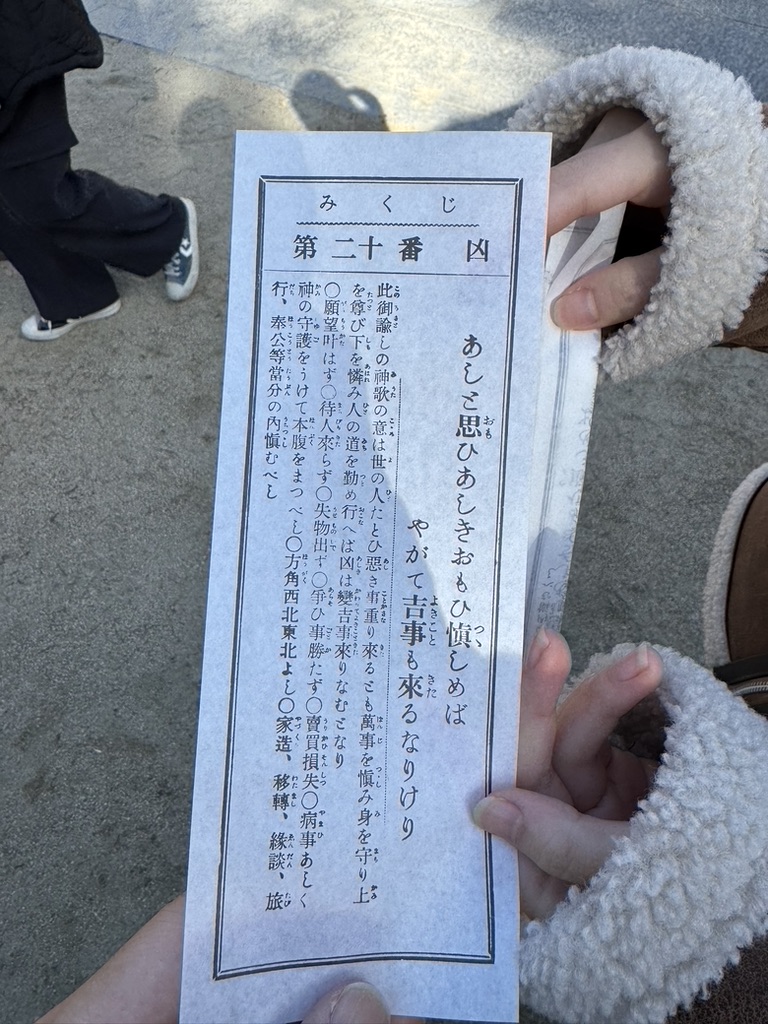 みくじ
第二十番 凶
あしと思ひあしきおもひ慎しめば
やがて吉事も來るなりけり
此御諭しの神歌の意は世の人たとひ惡き事重り來るとも萬事を愼み身を守り上
を尊び下を憐み人の道を勤め行へば凶は變吉事來りなむとなり
〇願望叶はず〇待人來らず〇失物出ず〇爭ひ事勝たず〇賣買損失〇病事あしく
神の守護をうけて本腹をまつべし〇方角西北東北よし〇家造、移轉、緣談、旅
行、奉公等當分の內愼むべし